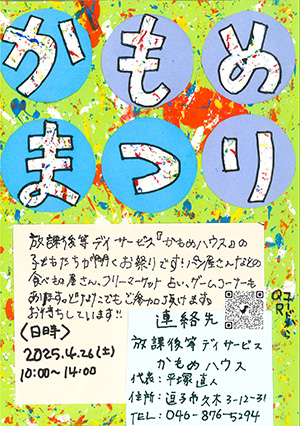 かもめ
まつり
放課後等デイサービス『かもめハウス』の
子どもたちが開くお祭りです!パン屋さんなどの
食べもの屋さん、フリーマーケット
占い、ゲームコーナーも
あります。どなたでもご参加頂けます。
お待ちしています!!
〈日時〉
2025.4.26(土)
10:00〜14:00
連絡先
放課後等デイサービス
かもめハウス
代表:平塚直人
住所:逗子市久木3-12-31
TEL:046-876-5294
QR